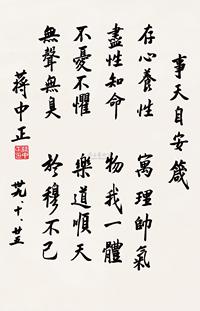 事天自安箴
存心養性 寓理帥氣
盡性知命 物我一體
不憂不懼 樂道順天
無聲無臭 於穆不已
蔣中正